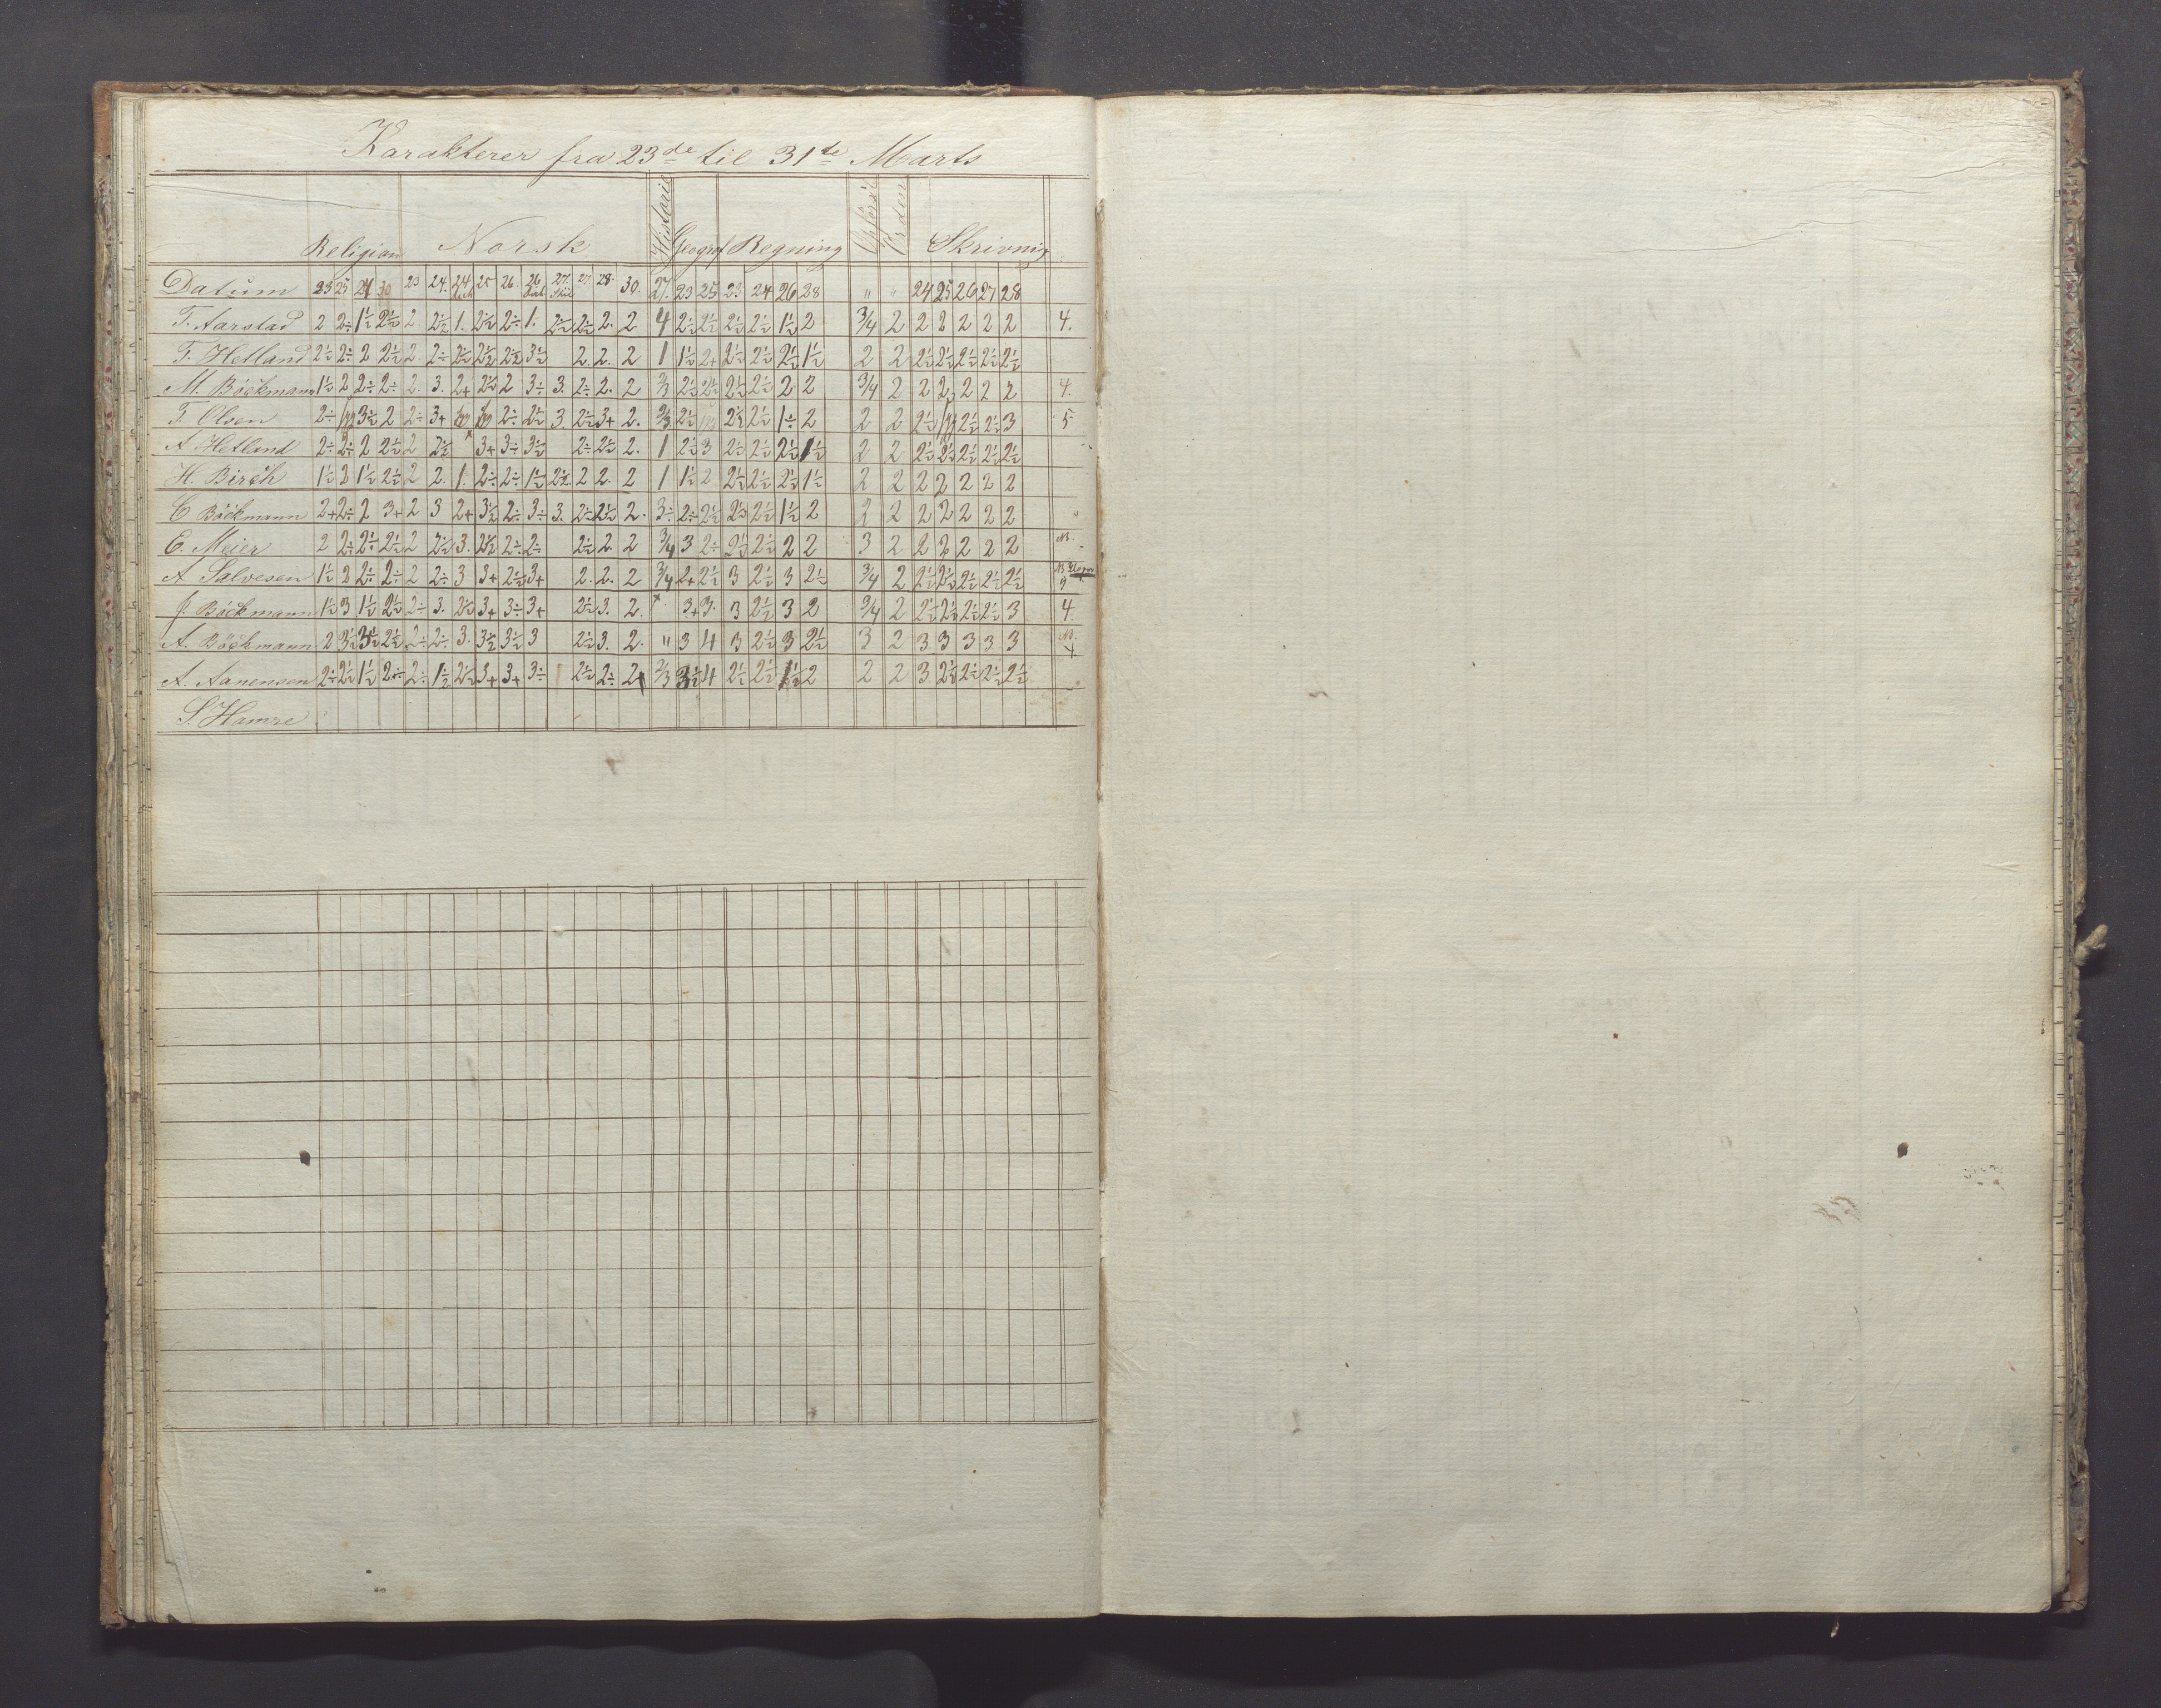 Karakterer fra 23de til 31te Marts
Religion Norsk Historie Geogra Regning Opførsel Orden Skrivnig
Datum 23 25 27 30 23 24. 24 25 26. 26 27. 27 28. 30. 27. 23 25 23 24 26 28 " " 24 25 26 27 28
T. Aarstad 2 2÷ 1½ 2½ 2. 2½ 1. 2½ 2÷ 1. 2½ 2½ 2. 2 4 2½ 2½ 2½ 2½ 1½ 2 3/4 2 2 2 2 2 2 4.
T. Hetland 2½ 2÷ 2 2½ 2 2÷ 2½ 2½ 2½ 3½ 2. 2. 2 1 1½ 2+ 2½ 2½ 2½ 1½ 2 2 2½ 2½ 2½ 2½ 2½
M. Böckmann 1½ 2 2÷ 2÷ 2. 3. 2+ 2½ 2 3÷ 3. 2÷ 2. 2 2/3 2½ 2½ 2½ 2½ 2 2 3/4 2 2 2 2 2 2 4.
T. Olsen 2÷ 3½ 2 2÷ 3+ 2÷ 2½ 3. 2½ 3+ 2. 2/3 2½ 2½ 2½ 1÷ 2 2 2 2½ 2½ 2½ 3 5
A Hetland 2÷ 2÷ 2 2½ 2 2½ 3+ 3÷ 3½ 2÷ 2½ 2. 1 2½ 3 2½ 2½ 2½ 1½ 2 2 2½ 2½ 2½ 2½ 2½
H. Birch 1½ 2 1½ 2½ 2 2. 1. 2÷ 2÷ 1½ 2½ 2 2. 2 1 1½ 2 2½ 2½ 2½ 1½ 2 2 2 2 2 2 2
C Böckmann 2+ 2÷ 2 3+ 2 3 2+ 3½ 2÷ 3÷ 3. 2½ 2½ 2. 3÷ 2÷ 2½ 2½ 2½ 1½ 2 2 2 2 2 2 2 2
E. Meier 2 2÷ 2÷ 2½ 2 2½ 3. 2½ 2÷ 2÷ 2½ 2. 2 3/4 3 2÷ 2½ 2½ 2 2 3 2 2 2 2 2 2
A Salvesen 1½ 2 2÷ 2÷ 2 2÷ 3 3+ 2½ 3+ 2. 2. 2 3/4 2+ 2½ 3 2½ 3 2½ 3/4 2 2½ 2½ 2½ 2½ 2½
J. Böckmann 1½ 3 1½ 2½ 2÷ 3. 2½ 3+ 3÷ 3+ 2½ 3. 2. × 3+ 3 3 2½ 3 2 3/4 2 2½ 2½ 2½ 2½ 3 4.
A. Böckmann 2 3½ 3½ 2½ 2÷ 2÷ 3. 3½ 3½ 3 2½ 3. 2. " 3 4 3 2½ 3 2½ 3 2 3 3 3 3 3
A. Aanensen 2÷ 2½ 1½ 2÷ 2÷ 1½ 2½ 3+ 3+ 3÷ 2½ 2÷ 2 2/3 3½ 4 2½ 2½ 1½ 2 2 2 3 2½ 2½ 2½ 2½
S. Hamre